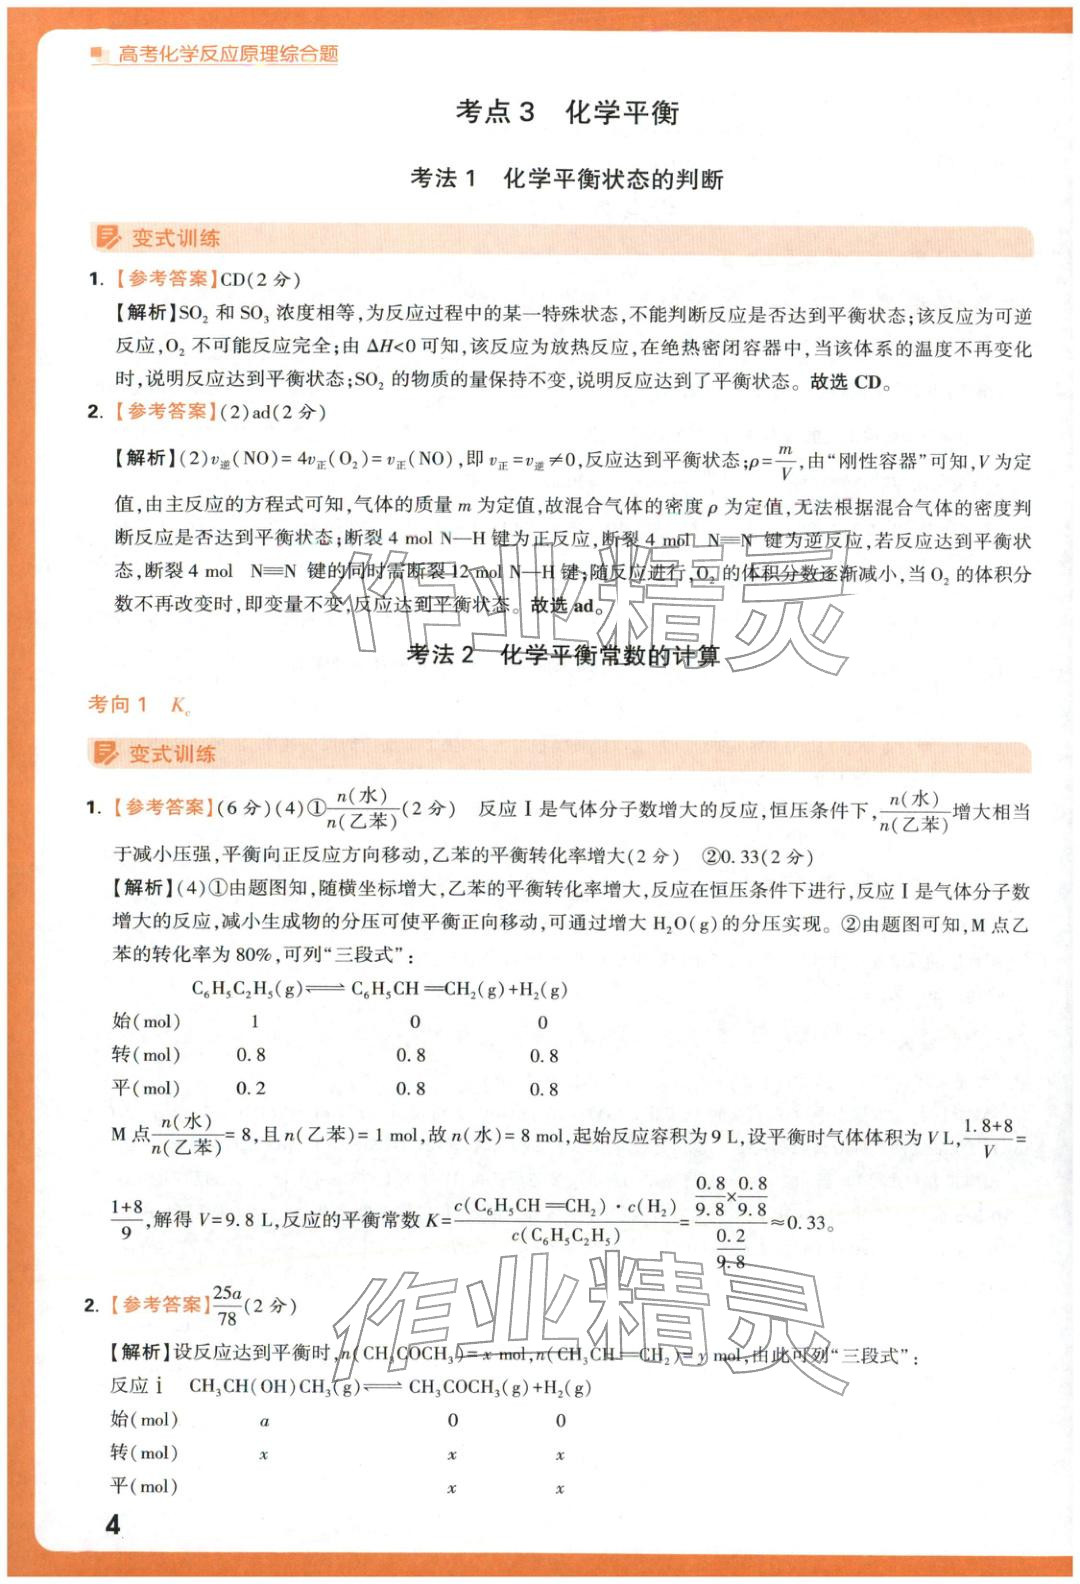 高考化学反应原理综合题
考点3 化学平衡
考法1 化学平衡状态的判断
变式训练
1.【参考答案】CD(2分)
【解析】SO₂ 和 SO₃ 浓度相等,为反应过程中的某一特殊状态,不能判断反应是否达到平衡状态;该反应为可逆
反应,O₂ 不可能反应完全;由 ΔH<0 可知,该反应为放热反应,在绝热密闭容器中,当该体系的温度不再变化
时,说明反应达到平衡状态;SO₂ 的物质的量保持不变,说明反应达到了平衡状态。故选 CD。
2.【参考答案】(2)ad(2分)
【解析】(2)v逆(NO)=4v正(O₂)=v正(NO),即 v正=v逆≠0,反应达到平衡状态;ρ=m/V,由“刚性容器”可知,V 为定
值,由主反应的方程式可知,气体的质量 m 为定值,故混合气体的密度 ρ 为定值,无法根据混合气体的密度判
断反应是否达到平衡状态;断裂 4 mol N—H 键为正反应,断裂 4 mol N≡N 键为逆反应,若反应达到平衡状
态,断裂 4 mol N≡N 键的同时需断裂 12 mol N—H 键;随反应进行,O₂ 的体积分数逐渐减小,当 O₂ 的体积分
数不再改变时,即变量不变,反应达到平衡状态。故选 ad。
考法2 化学平衡常数的计算
考向1 Kc
变式训练
1.【参考答案】(6分)(4)①n(水)/n(乙苯)(2分) 反应Ⅰ是气体分子数增大的反应,恒压条件下,n(水)/n(乙苯)增大相当
于减小压强,平衡向正反应方向移动,乙苯的平衡转化率增大(2分) ②0.33(2分)
【解析】(4)①由题图知,随横坐标增大,乙苯的平衡转化率增大,反应在恒压条件下进行,反应Ⅰ是气体分子数
增大的反应,减小生成物的分压可使平衡正向移动,可通过增大 H₂O(g)的分压实现。②由题图可知,M 点乙
苯的转化率为 80%,可列“三段式”:
C₆H₅C₂H₅(g)⇌C₆H₅CH=CH₂(g)+H₂(g)
始(mol) 1 0 0
转(mol) 0.8 0.8 0.8
平(mol) 0.2 0.8 0.8
M 点n(水)/n(乙苯)=8,且 n(乙苯)=1 mol,故 n(水)=8 mol,起始反应容积为 9 L,设平衡时气体体积为 V L,(1.8+8)/V=
(1+8)/9,解得 V=9.8 L,反应的平衡常数 K=c(C₆H₅CH=CH₂)·c(H₂)/c(C₆H₅C₂H₅)=(0.8/9.8×0.8/9.8)/(0.2/9.8)≈0.33。
2.【参考答案】25a/78(2分)
【解析】设反应达到平衡时,n(CH₃COCH₃)=x mol,n(CH₃CH=CH₂)=y mol,由此可列“三段式”:
反应ⅰ CH₃CH(OH)CH₃(g)⇌CH₃COCH₃(g)+H₂(g)
始(mol) a 0 0
转(mol) x x x
平(mol) x x
4
作业精灵
作业精灵